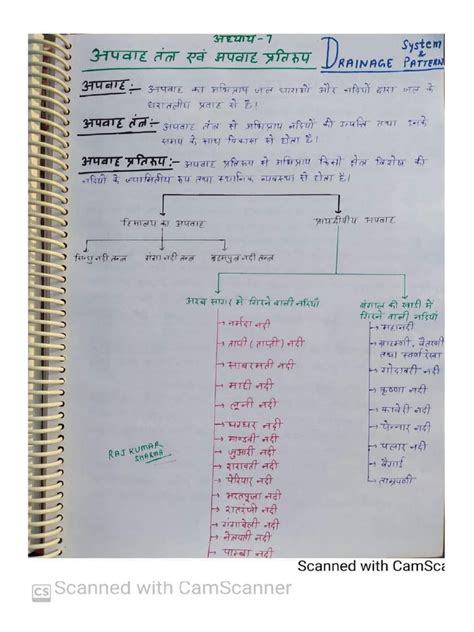 अध्याय-7
अपवाह तंत्र एवं अपवाह प्रतिरूप DRAINAGE System & PATTERN
अपवाह :- अपवाह का अभिप्राय जल धाराओं और नदियों द्वारा जल के
धरातलीय प्रवाह से है।
अपवाह तंत्र :- अपवाह तंत्र से अभिप्राय नदियों की उत्पत्ति तथा उनके
समय के साथ विकास से होता है।
अपवाह प्रतिरूप :- अपवाह प्रतिरूप से अभिप्राय किसी क्षेत्र विशेष की
नदियों के ज्यामितीय रूप तथा स्थानिक व्यवस्था से होता है।
हिमालय का अपवाह
प्रायद्वीपीय अपवाह
सिन्धु नदी तन्त्र गंगा नदी तन्त्र ब्रह्मपुत्र नदी तन्त्र
अरब सागर में गिरने वाली नदियाँ
नर्मदा नदी
तापी (ताप्ती) नदी
साबरमती नदी
माही नदी
लूनी नदी
घग्घर नदी
माण्डवी नदी
जुआरी नदी
शरावती नदी
पेरियार नदी
भरतपूजा नदी
गंगावेली नदी
पाम्बा नदी
बंगाल की खाड़ी में
गिरने वाली नदियाँ
महानदी
ब्राह्मणी, वैतरणी
तथा स्वर्ण रेखा
गोदावरी नदी
कृष्णा नदी
कावेरी नदी
पेन्नार नदी
पलार नदी
वैगई
ताम्रपर्णी
RAJ KUMAR
SHARMA
Scanned with CamSca
CS Scanned with CamScanner